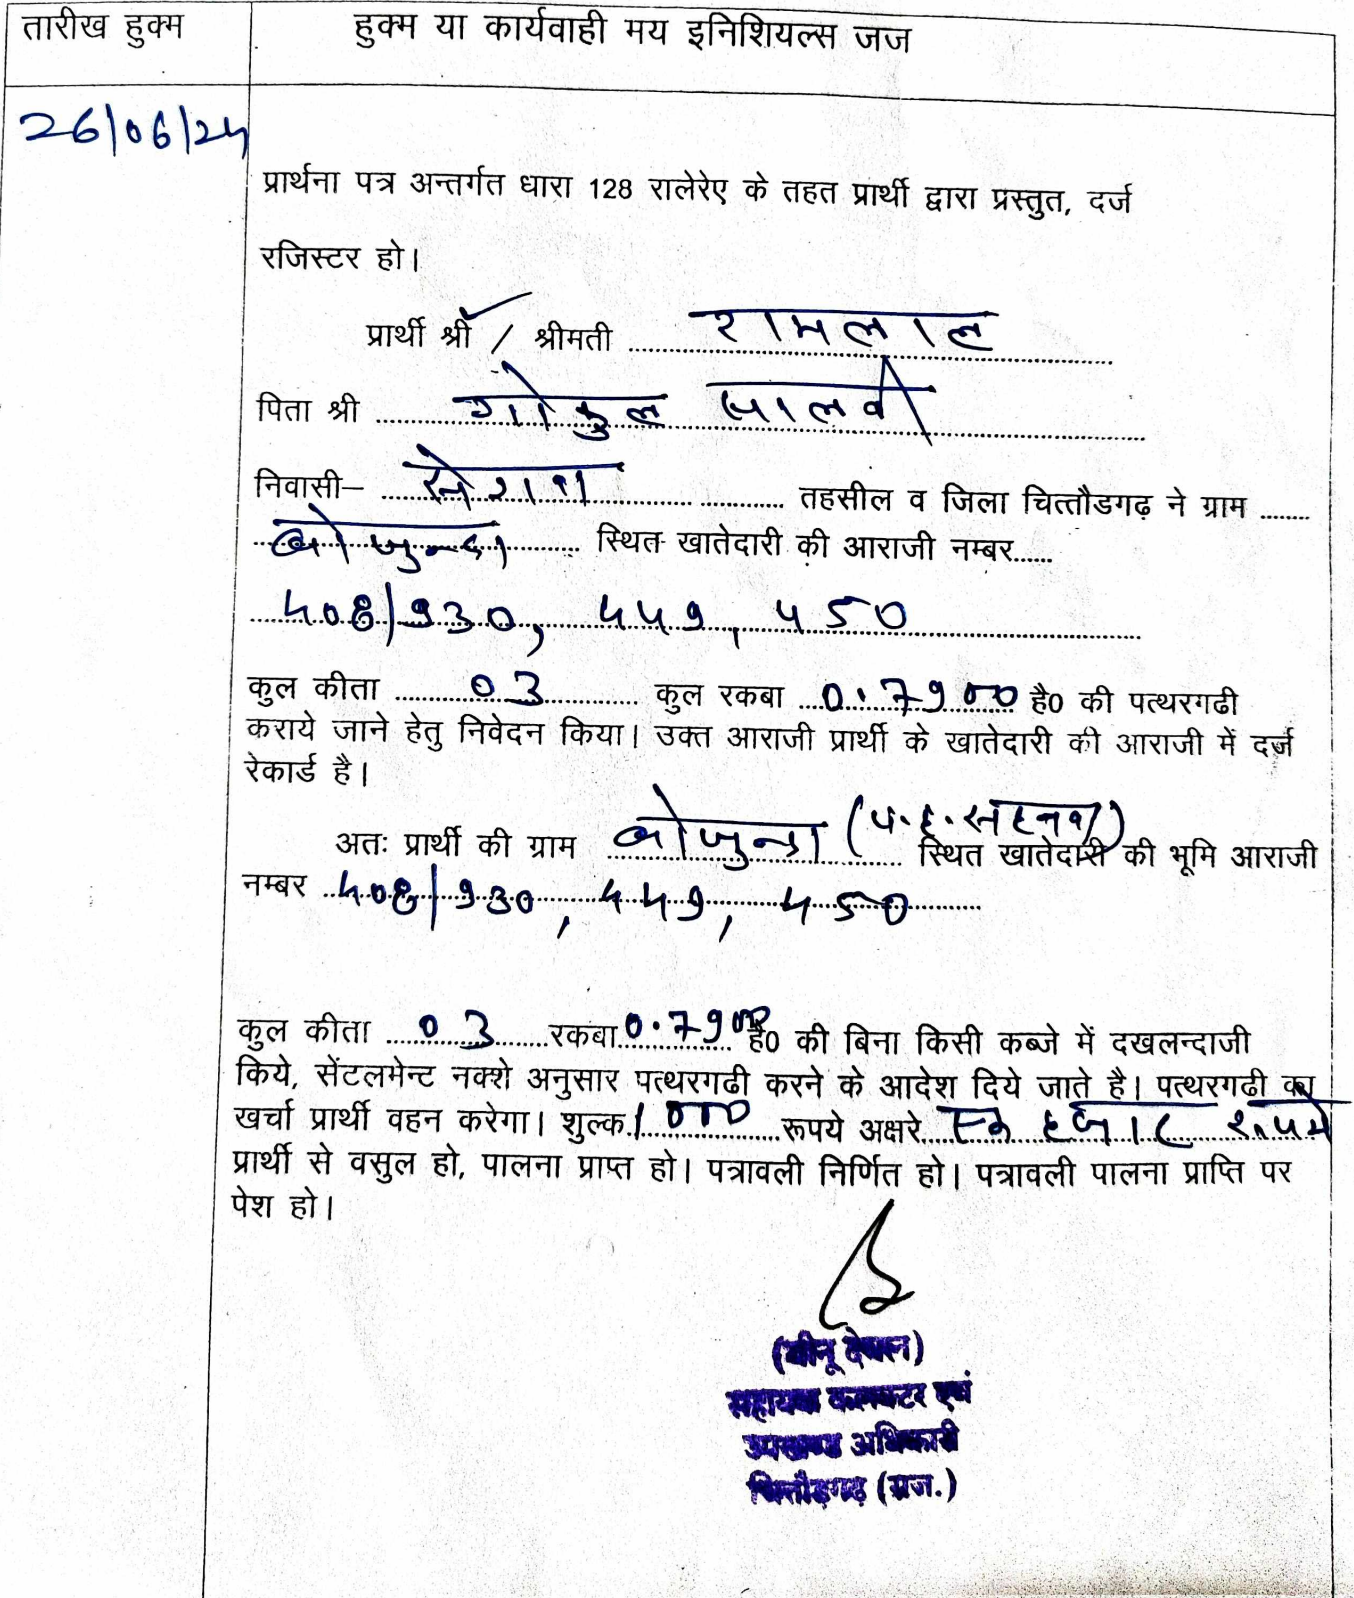 तारीख हुक्म
हुक्म या कार्यवाही मय इनिशियल्स जज
26/06/24
प्रार्थना पत्र अन्तर्गत धारा 128 रालेरेए के तहत प्रार्थी द्वारा प्रस्तुत, दर्ज
रजिस्टर हो।
प्रार्थी श्री / श्रीमती रामलाल
पिता श्री गोकुल सालवी
निवासी– तहसील व जिला चित्तौडगढ़ ने ग्राम
बोजुन्दा स्थित खातेदारी की आराजी नम्बर
408/930, 449, 450
कुल कीता 03 कुल रकबा 0.7900 है0 की पत्थरगढी
कराये जाने हेतु निवेदन किया। उक्त आराजी प्रार्थी के खातेदारी की आराजी में दर्ज
रेकार्ड है।
अतः प्रार्थी की ग्राम बोजुन्दा (प.ह. स्थित खातेदारी की भूमि आराजी
नम्बर 408/930, 449, 450
कुल कीता 03 रकबा 0.7900 है0 की बिना किसी कब्जे में दखलन्दाजी
किये, सेंटलमेन्ट नक्शे अनुसार पत्थरगढी करने के आदेश दिये जाते है। पत्थरगढी का
खर्चा प्रार्थी वहन करेगा। शुल्क 1000 रूपये अक्षरे एक हजार रूपये
प्रार्थी से वसुल हो, पालना प्राप्त हो। पत्रावली निर्णित हो। पत्रावली पालना प्राप्ति पर
पेश हो।
(बीनू देवल)
सहायक कलक्टर एवं
उपखण्ड अधिकारी
चित्तौड़गढ़ (राज.)